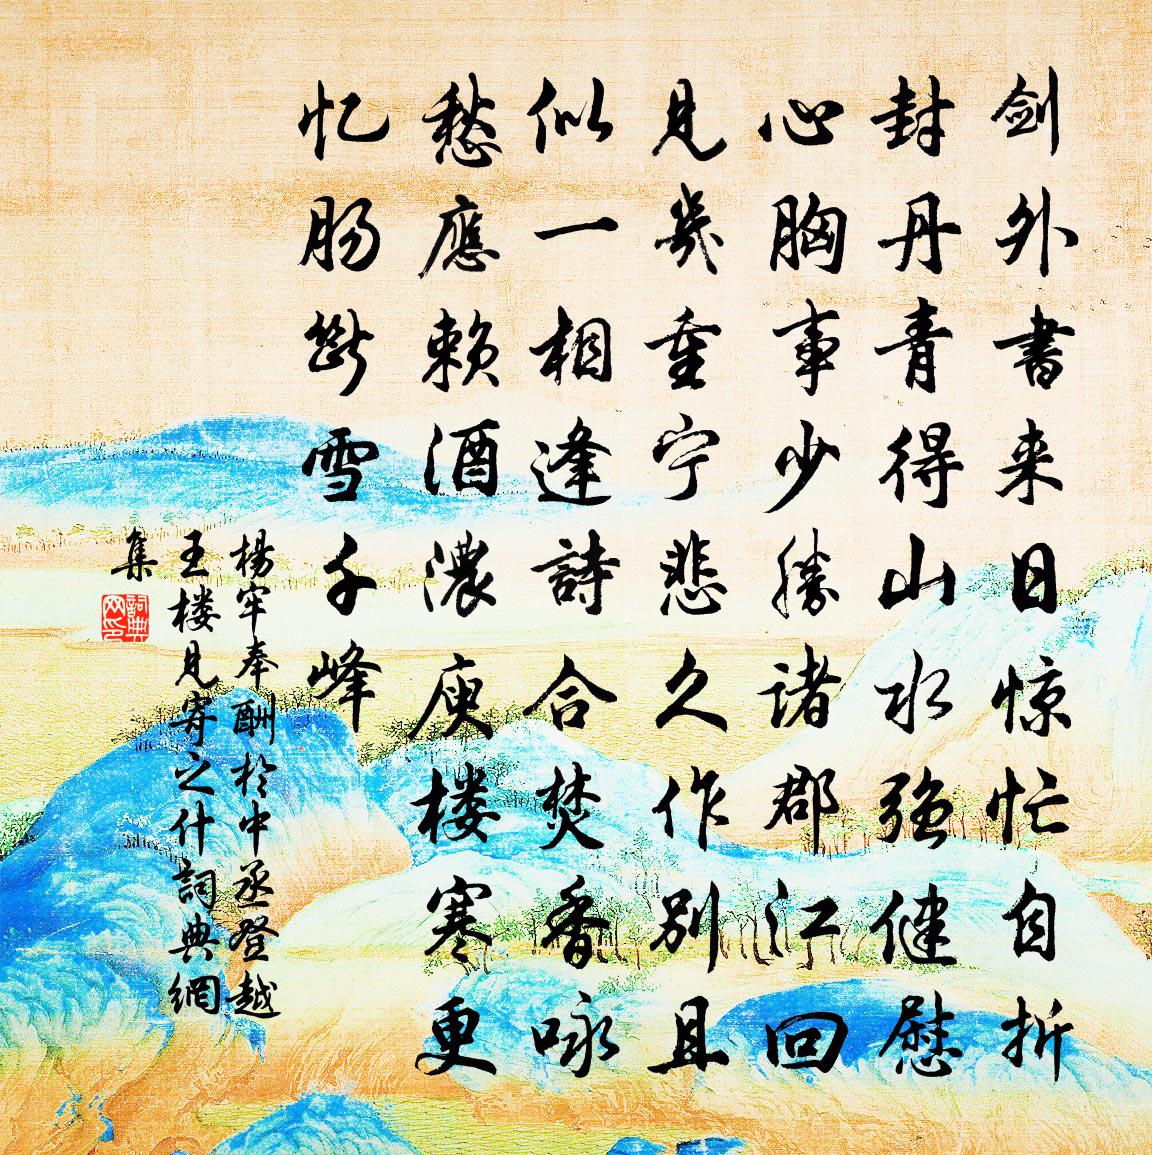 剑外书来日惊忙自折
封丹青得山水强健慰
心胸事少胜诸郡江回
见几重宁悲久作别且
似一相逢詩合焚香咏
愁應赖酒浓庾楼寒更
忆肠断雪千峰
杨牢奉酬於中丞登越
王楼见寄之什詞典網
集
詞典網印